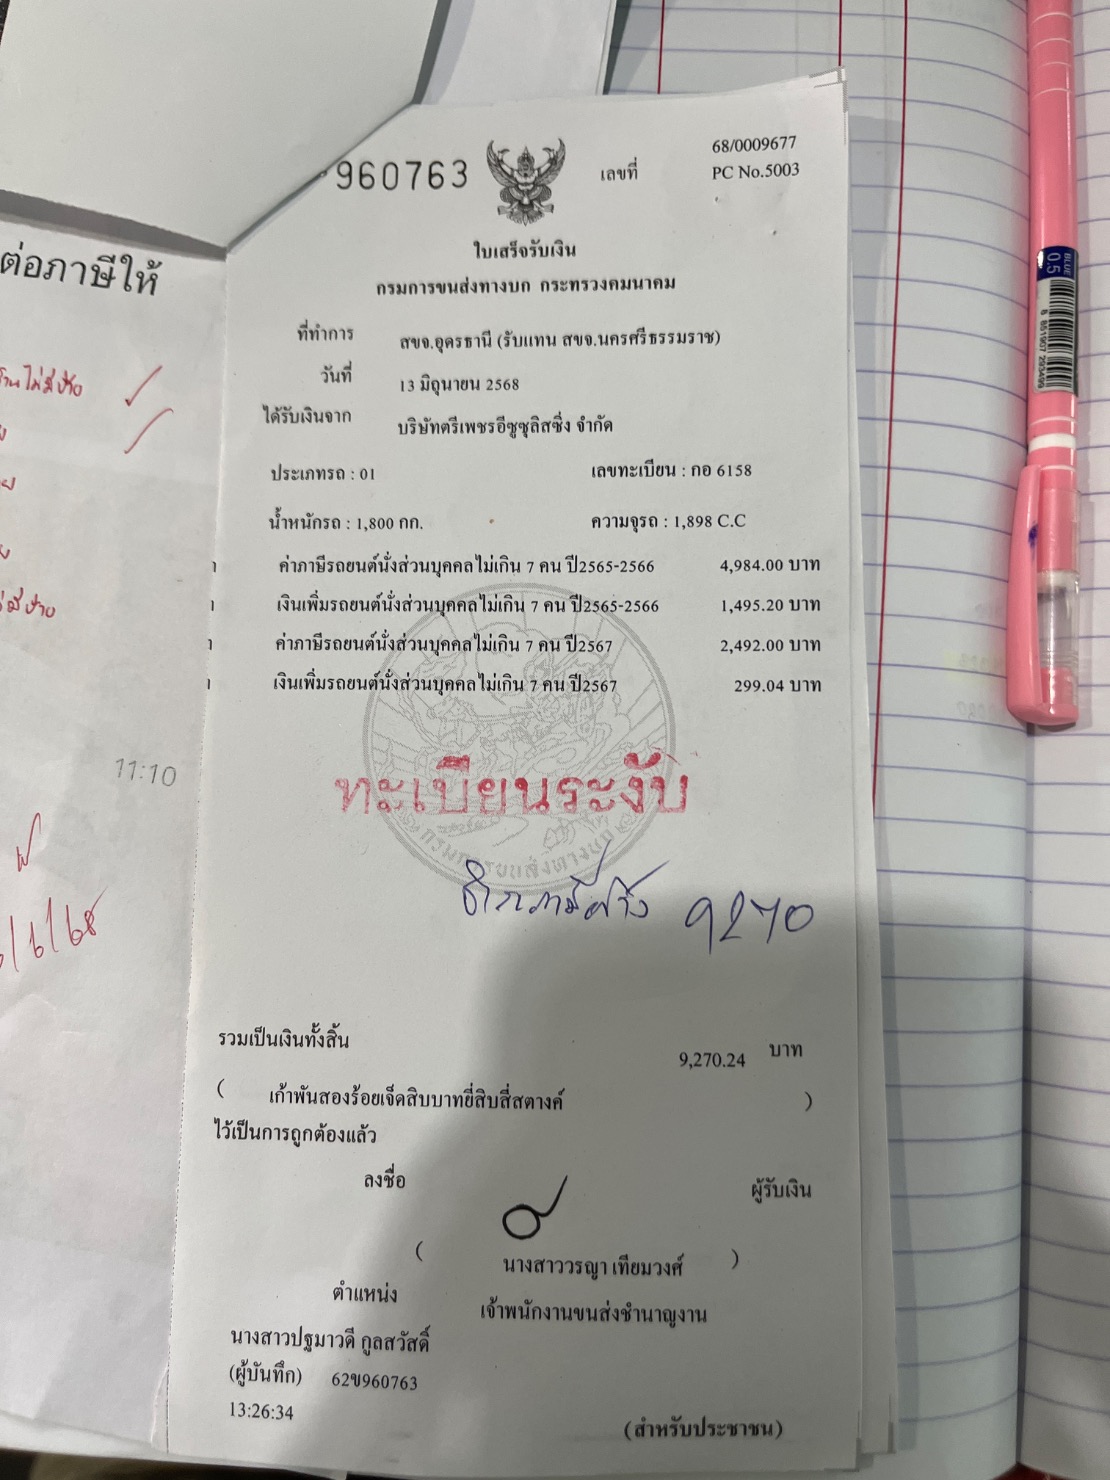 960763
เลขที่ 68/0009677
PC No.5003
ใบเสร็จรับเงิน
กรมการขนส่งทางบก กระทรวงคมนาคม
ที่ทำการ สขจ.อุดรธานี (รับแทน สขจ.นครศรีธรรมราช)
วันที่ 13 มิถุนายน 2568
ได้รับเงินจาก บริษัทตรีเพชรอีซูซุลิสซิ่ง จำกัด
ประเภทรถ : 01 เลขทะเบียน : กอ 6158
น้ำหนักรถ : 1,800 กก. ความจุรถ : 1,898 C.C
ค่าภาษีรถยนต์นั่งส่วนบุคคลไม่เกิน 7 คน ปี2565-2566 4,984.00 บาท
เงินเพิ่มรถยนต์นั่งส่วนบุคคลไม่เกิน 7 คน ปี2565-2566 1,495.20 บาท
ค่าภาษีรถยนต์นั่งส่วนบุคคลไม่เกิน 7 คน ปี2567 2,492.00 บาท
เงินเพิ่มรถยนต์นั่งส่วนบุคคลไม่เกิน 7 คน ปี2567 299.04 บาท
ทะเบียนระงับ
กรมการขนส่งทางบก
9270
รวมเป็นเงินทั้งสิ้น 9,270.24 บาท
( เก้าพันสองร้อยเจ็ดสิบบาทยี่สิบสี่สตางค์ )
ไว้เป็นการถูกต้องแล้ว
ลงชื่อ ผู้รับเงิน
( นางสาววรญา เทียมวงศ์ )
ตำแหน่ง เจ้าพนักงานขนส่งชำนาญงาน
นางสาวปฐมาวดี กูลสวัสดิ์
(ผู้บันทึก) 62ข960763
13:26:34
(สำหรับประชาชน)
ต่อภาษีให้
11:10
/6/68
BLUE
0.5
8 851907 293499